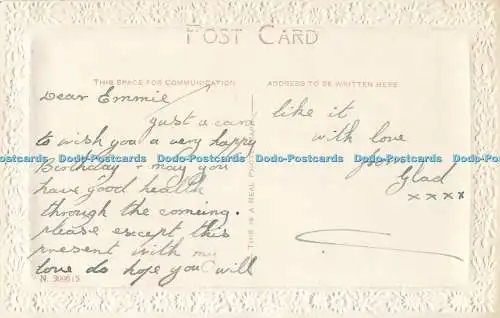 POST CARD
THIS SPACE FOR COMMUNICATION
ADDRESS TO BE WRITTEN HERE
Dear Emmie
just a card
to wish you a very happy
Birthday & may you
have good health
through the comeing.
please except this
present with my
love do hope you will
N. 
THIS IS A REAL
like it
with love
from
Glad
xxxx
Dodo-Postcards Dodo-Postcards Dodo-Postcards Dodo-Postcards Dodo-Postcards